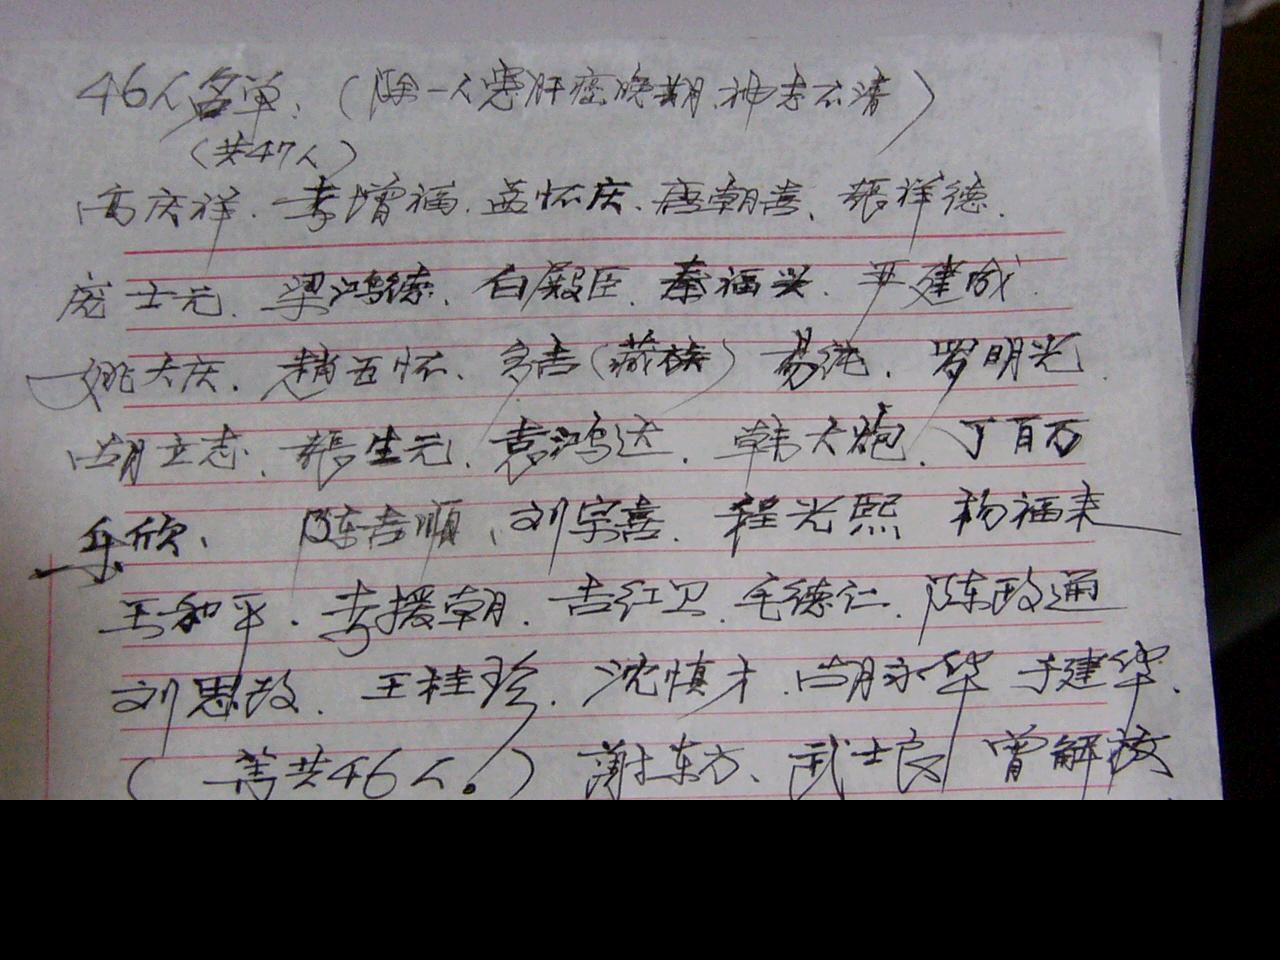 46人名单:(除一人患肝癌晚期、神志不清)
(共47人)
高庆祥、李增福、孟怀庆、唐朝喜、張祥德、
庞士元、梁鸿德、白殿臣、秦福兴、严建成、
姚大庆、趙五怀、多吉(藏族) 易纯、罗明光、
胡立志、張生元、袁鸿达、韩大炮、丁百万
乐欣、 陈吉順、刘宗喜、程光熙 杨福来
王和平、李援朝、吉红卫、毛德仁、陈政通
刘思政、王桂珍、沈慎才、胡永华 于建华、
( 等共46人。) 謝东方、武士良 曾解放